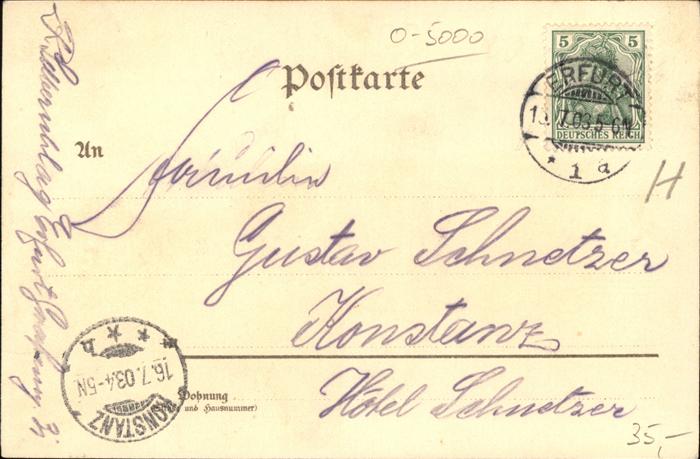 O-5000
Postkarte
5 5
ERFURT
7.03.5-6N
DEUTSCHES REICH
* 1 a
An
Fräulein
H
Gustav Schnetzer
Konstanz
Wohnung
(Straße und Hausnummer)
Hôtel Schnetzer
35,-
KONSTANZ
16.7.03.4-5N
Erfurt